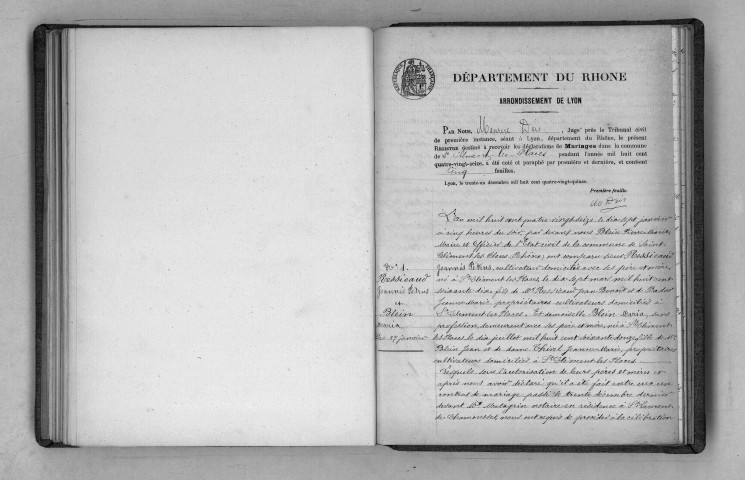 DÉPARTEMENT DU RHONE
ARRONDISSEMENT DE LYON
PAR NOUS, , Juge près le Tribunal civil
de première instance, séant à Lyon, département du Rhône, le présent
REGISTRE destiné à recevoir les déclarations de Mariages dans la commune
de St Clément les Places pendant l'année mil huit cent
quatre-vingt-seize, a été coté et paraphé par première et dernière, et contient
Cinq feuilles.
Lyon, le trente-un décembre mil huit cent quatre-vingt-quinze.
Première feuille
L'an mil huit cent quatre vingt seize le dix sept janvier
à cinq heures du soir, par devant nous Blein Pierre Marie
Maire et Officier de l'Etat civil de la commune de Saint
Clément les Places Rhône, ont comparu sieur Ressicaud
Joannès Pétrus, cultivateur domicilié avec ses père et mère,
né à St Clément les Places, le dix sept mars mil huit cent
soixante dix, fils de Mr Ressicaud Jean Benoit et de
Jeanne Marie, propriétaires cultivateurs domiciliés à
St Clément les Places. Et demoiselle Blein Maria, sans
profession, demeurant avec ses père et mère, née à St Clément
les Places le dix juillet mil huit cent soixante douze fille de Mr
Blein Jean et de dame Thival Jeanne Marie, propriétaires
cultivateurs domiciliés à St Clément les Places.
Lesquels, sous l'autorisation de leurs pères et mères et
après nous avoir déclaré qu'il a été fait entre eux un
contrat de mariage passé le trente décembre dernier
devant Me Malagrin notaire en résidence à St Laurent
de Chamousset, nous ont requis de procéder à la célébration
No 1.
Ressicaud
Joannès Pétrus
et
Blein
Maria
Du 17 janvier